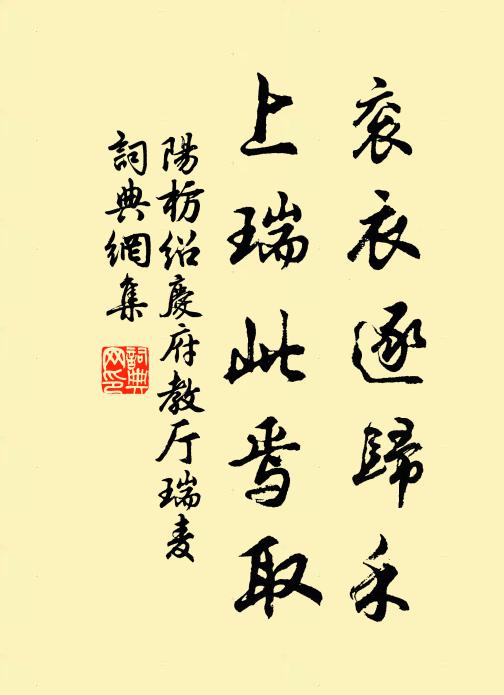 衮衣逐歸禾
上瑞此焉取
陽枋绍慶府教厅瑞麦
詞典網集
詞典
网印